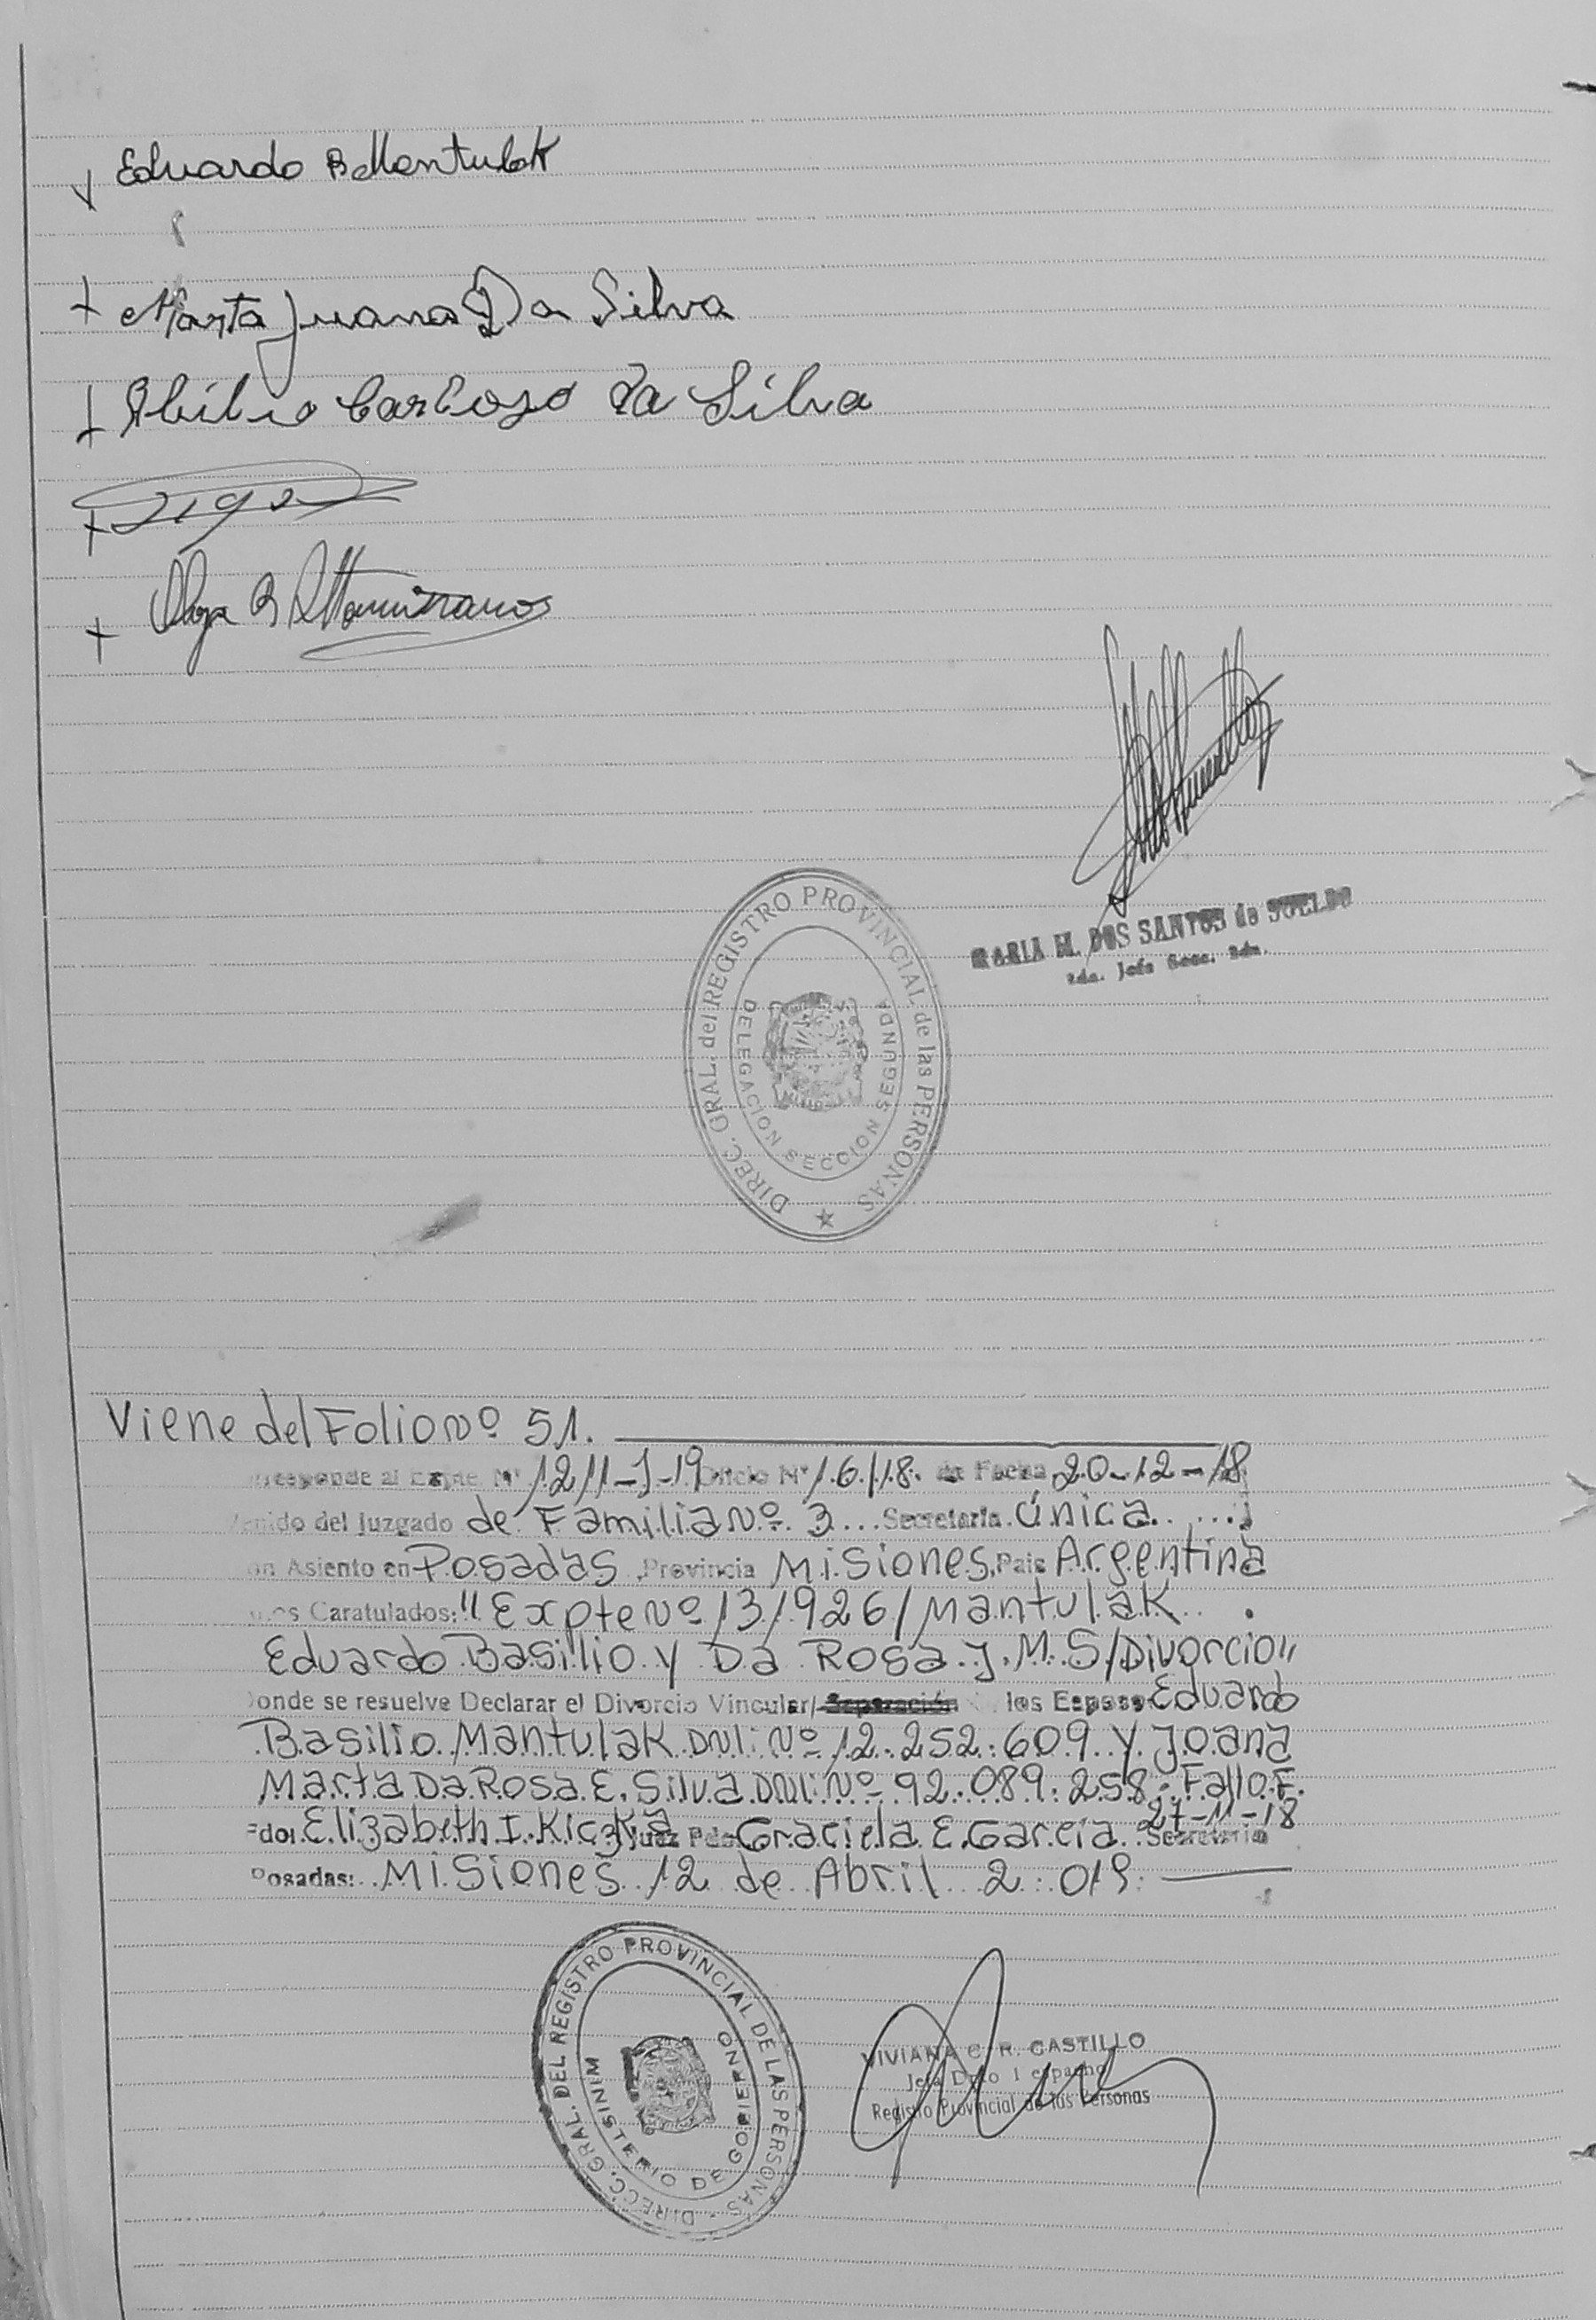 Eduardo B Mantulak
Marta Juana Da Silva
Abilio Cardoso da Silva
Olga B Altamirano
MARIA M. DOS SANTOS de SUELDO
2da. Jefa Secc. 2da.
DIREC. GRAL. del REGISTRO PROVINCIAL de las PERSONAS
DELEGACION SECCION SEGUNDA
Viene del Folio Nº 51.
rresponde al Expte. Nº 1211-J-19 Oficio Nº 16/18. de Fecha 20-12-18
venido del Juzgado de Familia Nº 3 Secretaria Única
on Asiento en Posadas Provincia Misiones, Pais Argentina
utos Caratulados: "Expte Nº 131926/Mantulak
Eduardo Basilio y Da Rosa J. M. S/Divorcio"
Donde se resuelve Declarar el Divorcio Vincular/ Separación los Esposos Eduardo
Basilio Mantulak DNI: Nº 12.252.609 y Joana
Marta Da Rosa E. Silva DNI: Nº 92.089.258. Fallo F.
27-11-18
Fdo: Elizabeth I. Kiczka Juez Pdo: Graciela E. Garcia Secretaria
Posadas: Misiones 12 de Abril 2.019
DIRECC. GRAL. DEL REGISTRO PROVINCIAL DE LAS PERSONAS
MINISTERIO DE GOBIERNO
VIVIANA C. R. CASTILLO
Jefa Dpto Despacho
Registro Provincial de las Personas